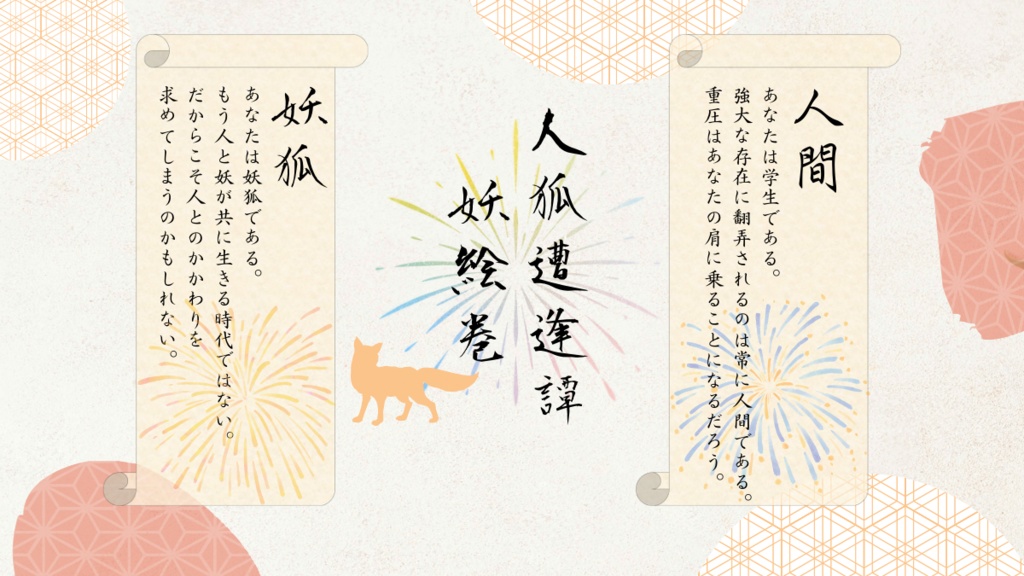 人間
あなたは学生である。
強大な存在に翻弄されるのは常に人間である。
重圧はあなたの肩に乗ることになるだろう。
人狐遭逢譚
妖絵巻
妖狐
あなたは妖狐である。
もう人と妖が共に生きる時代ではない。
だからこそ人とのかかわりを
求めてしまうのかもしれない。